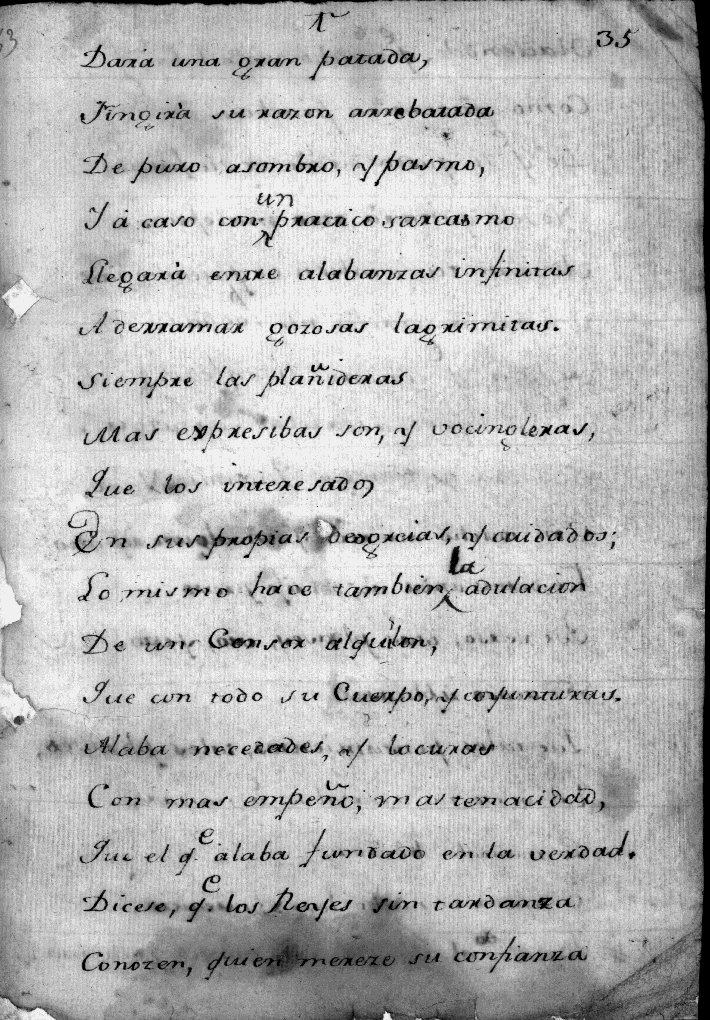 35
Dará una gran patada,
Fingirà su razon arrebatada
De puro asombro, y pasmo,
Y á caso con un practico sarcasmo
Llegarà entre alabanzas infinitas
A derramar gozosas lagrimitas.
Siempre las plañideras
Mas expresibas son, y vocingleras,
Que los interesados
En sus propias desgrcias, y cuidados;
Lo mismo hace tambien la adulacion
De un Censor alquilon,
Que con todo su Cuerpo, y coyunturas.
Alaba necedades, y locuras
Con mas empeño, mas tenacidad,
Que el q.e alaba fundado en la verdad.
Dicese, q.e los Reyes sin tardanza
Conozen, quien mereze su confianza